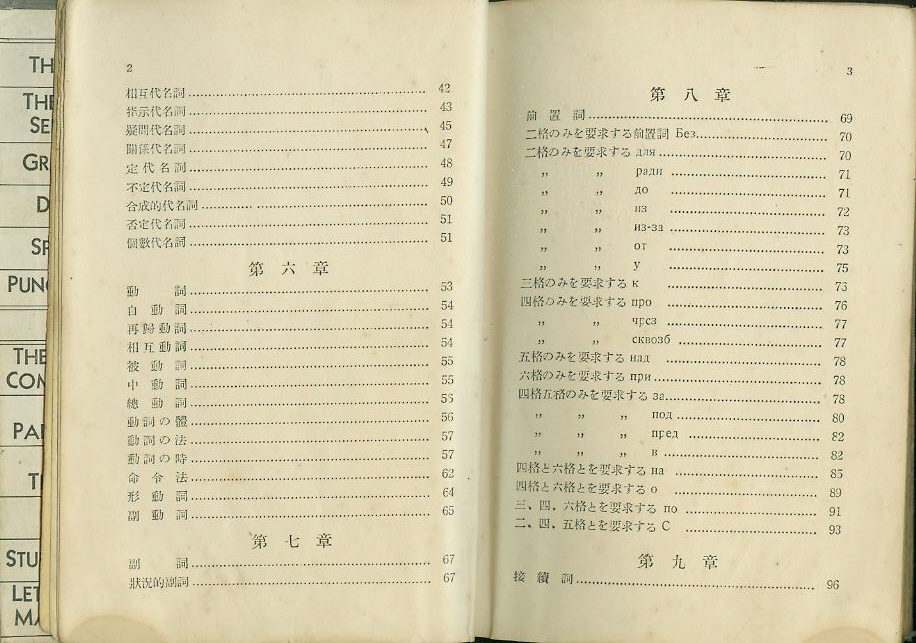 TH
THE
SE
GR
D
SP
PUNC
THE
COM
PAR
T
STU
LET
MA
2
相互代名詞 42
指示代名詞 43
疑問代名詞 45
關係代名詞 47
定代名詞 48
不定代名詞 49
合成的代名詞 50
否定代名詞 51
個數代名詞 51
第六章
動詞 53
自動詞 54
再歸動詞 54
相互動詞 54
被動詞 55
中動詞 55
總動詞 55
動詞の體 56
動詞の法 57
動詞の時 57
命令法 62
形動詞 64
副動詞 65
第七章
副詞 67
狀況的副詞 67
3
第八章
前置詞 69
二格のみを要求する前置詞 Без 70
二格のみを要求する для 70
〃 〃 ради 71
〃 〃 до 71
〃 〃 из 72
〃 〃 из-за 73
〃 〃 от 73
〃 〃 у 75
三格のみを要求する к 75
四格のみを要求する про 76
〃 〃 чрез 77
〃 〃 сквозб 77
五格のみを要求する над 78
六格のみを要求する при 78
四格五格のみを要求する за 78
〃 〃 〃 под 80
〃 〃 〃 пред 82
〃 〃 〃 в 82
四格と六格とを要求する на 85
四格と六格とを要求する о 89
三、四、六格とを要求する по 91
二、四、五格とを要求する С 93
第九章
接續詞 96